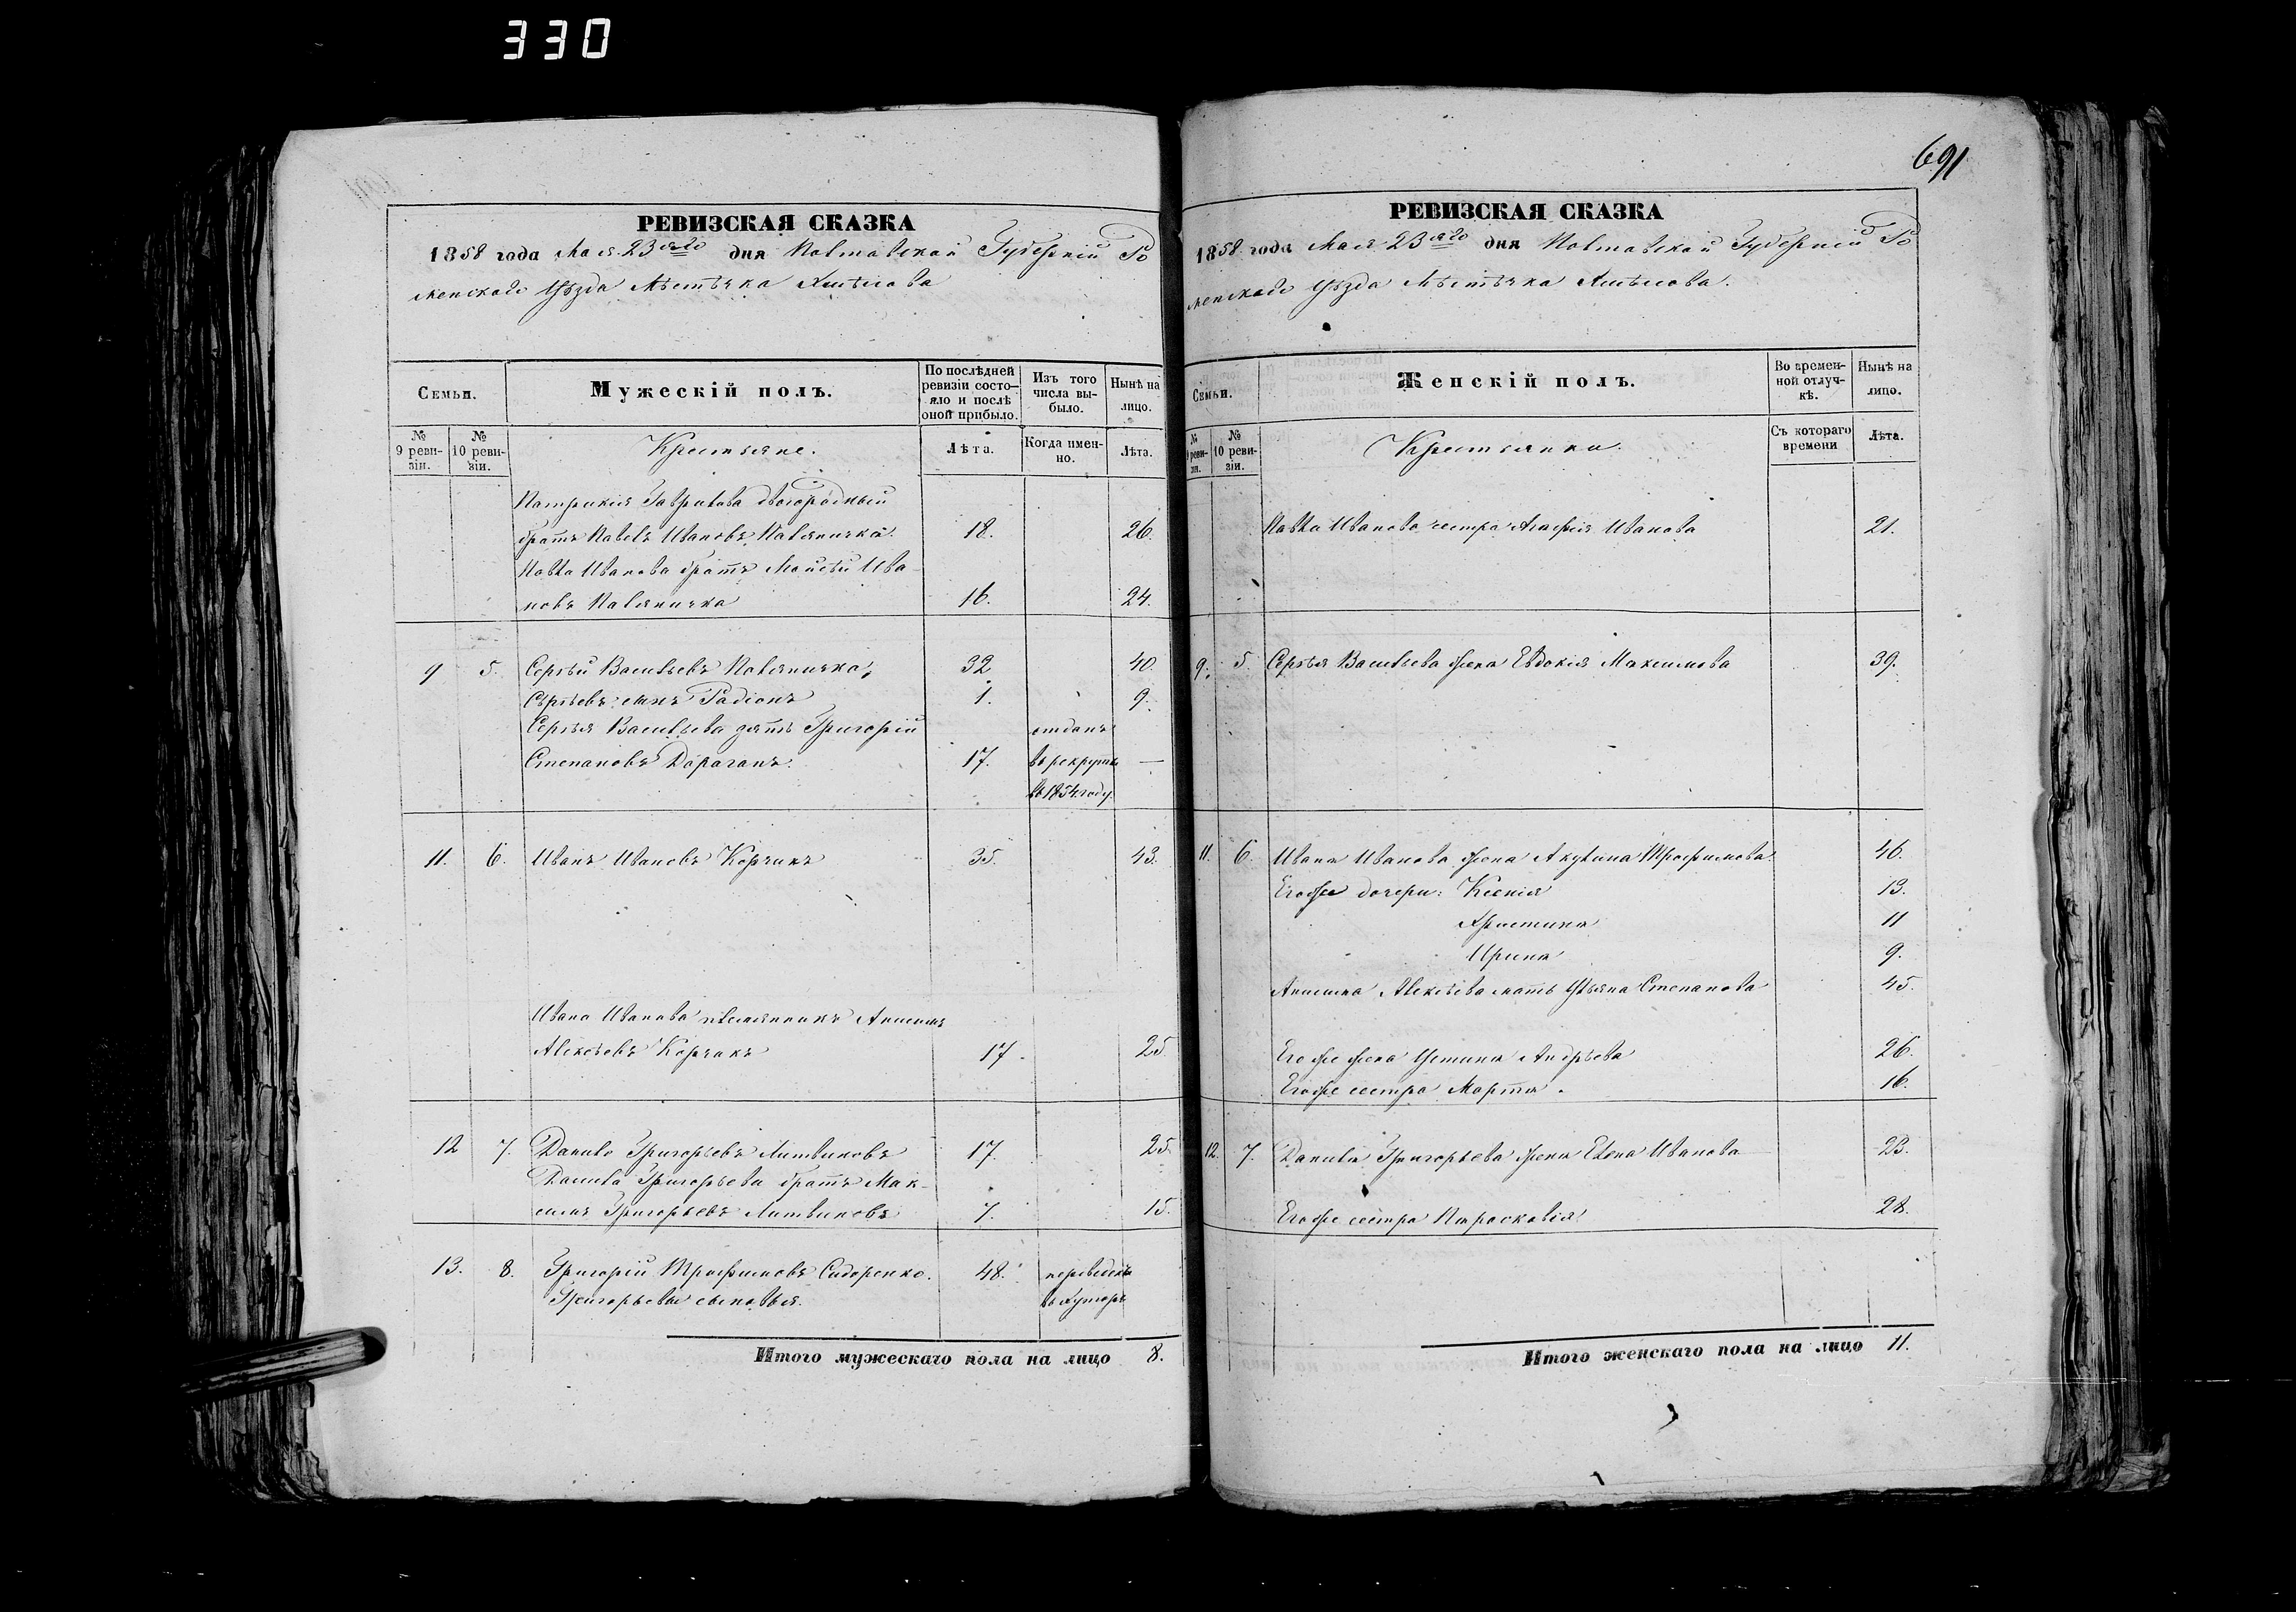 330
691
РЕВИЗСКАЯ СКАЗКА
1858 года Мая 23го дня Полтавской Губерніи Ро
менскаго Уѣзда Мѣстѣчка Хмѣлова
Семьи.
Мужескій полъ.
По послѣдней ревизіи состояло и послѣ оной прибыло.
Изъ того числа выбыло.
Нынѣ на лицо.
№ 9 ревизіи.
№ 10 ревизіи.
Крестьяне.
Лѣта.
Когда именно.
Лѣта.
Патрикія Гаврилова двоюродный
братъ Павелъ Ивановъ Паляничка 18. 26.
Павла Иванова братъ Моисѣй Ива
новъ Паляничка 16. 24.
9 5. Сергѣй Васильевъ Паляничка 32. 40.
Сергѣевъ сынъ Радіонъ 1. 9.
Сергѣя Васильева зять Григорій отданъ
Степановъ Дараганъ. 17. въ рекруты —
въ 1854 году.
11. 6. Иванъ Ивановъ Корчакъ 35. 43.
Ивана Иванова племянникъ Анисимъ
Алексѣевъ Корчакъ 17. 25.
12 7. Данило Григорьевъ Литвиновъ 17. 25.
Данила Григорьева братъ Мак-
симъ Григорьевъ Литвиновъ 7. 15.
13. 8. Григорій Трофимовъ Сидоренко. 48. переведенъ
Григорьевы сыновья. въ хуторъ
Итого мужескаго пола на лицо 8.
РЕВИЗСКАЯ СКАЗКА
1858 года Мая 23го дня Полтавской Губерніи Ро
менскаго Уѣзда Мѣстѣчка Хмѣлова.
Семьи.
Женскій полъ.
Во временной отлучкѣ.
Нынѣ на лицо.
№ 9 ревизіи.
№ 10 ревизіи.
Крестьянки.
Съ котораго времени
Лѣта.
Павла Иванова сестра Агафія Иванова 21.
9. 5. Сергѣя Васильева жена Евдокія Максимова 39.
11. 6. Ивана Иванова жена Акулина Трофимова. 46.
Егоже дочери: Ксенія 13.
Христина 11
Ирина 9.
Анисима Алексѣева мать Ульяна Степанова 45.
Его же жена Устина Андрѣева 26.
Егоже сестра Марта. 16.
12. 7. Данила Григорьева жена Елена Иванова 23.
Егоже сестра Парасковія 28.
Итого женскаго пола на лицо 11.